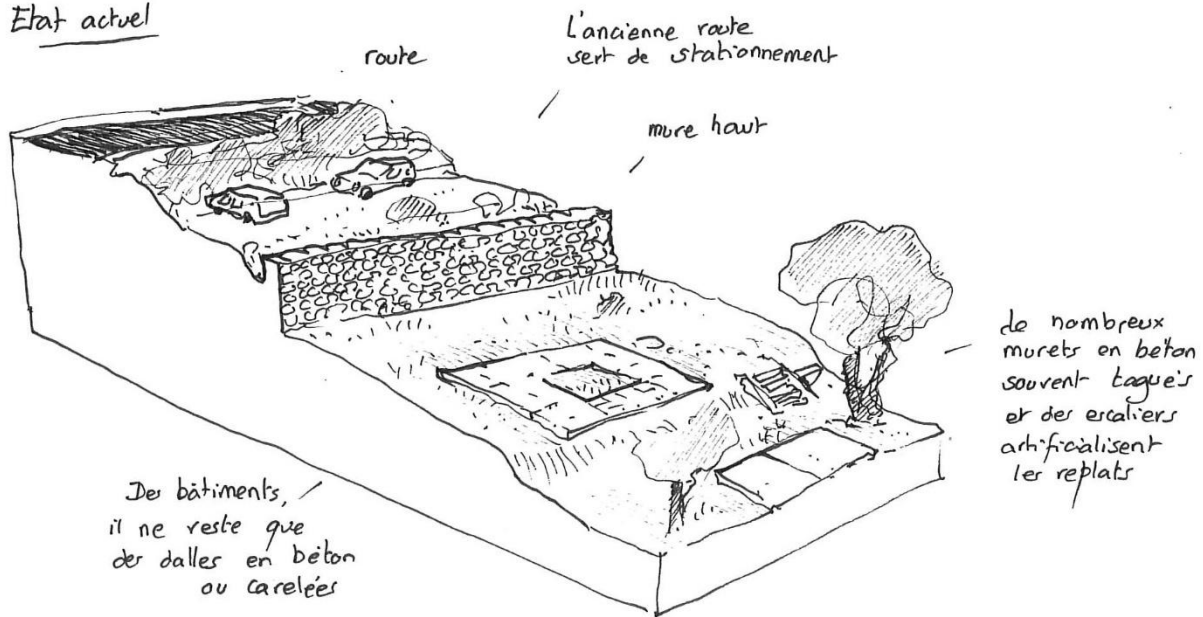 Etat actuel
route
L'ancienne route
sert de stationnement
mure haut
de nombreux
murets en béton
souvent tagués
et des escaliers
artificialisent
les replats
Des bâtiments,
il ne reste que
des dalles en béton
ou carelées